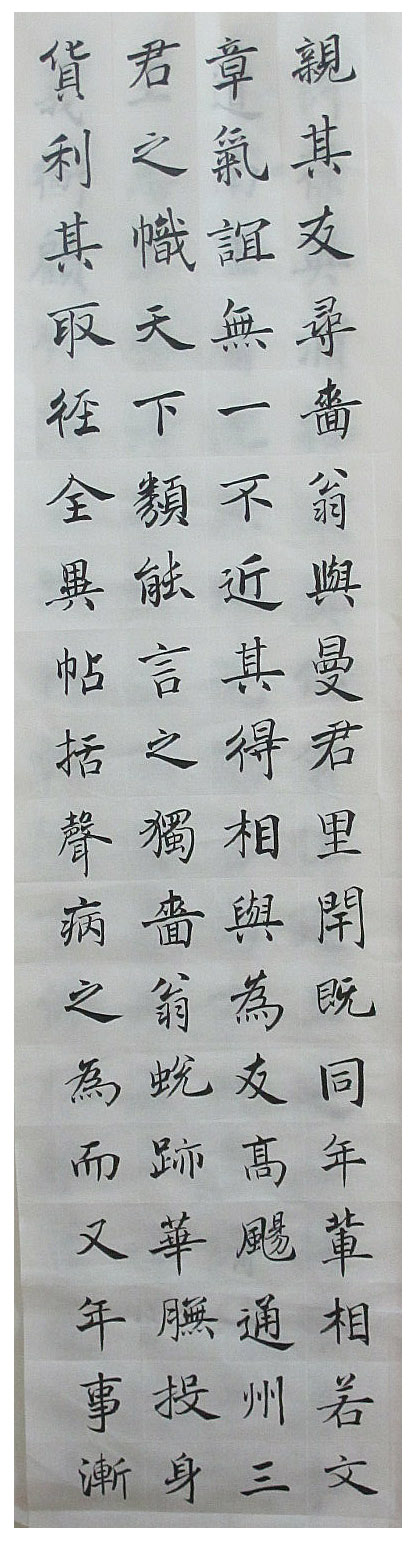 親其友尋嗇翁與曼君里閈既同年輩相若文
章氣誼無一不近其得相與為友高颺通州三
君之幟天下類能言之獨嗇翁蛻跡華膴投身
貨利其取徑全異帖括聲病之為而又年事漸